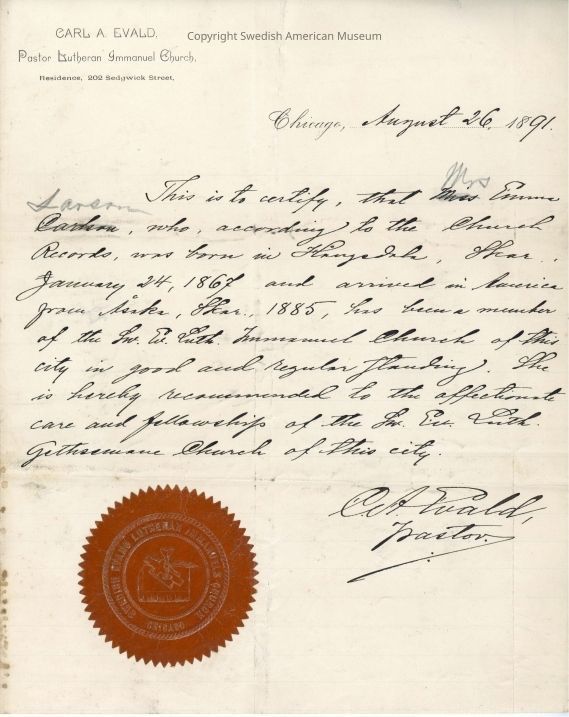 CARL A. EVALD,
Copyright Swedish American Museum
Pastor Lutheran Immanuel Church,
Residence, 202 Sedgwick Street,
Chicago, August 26, 1891.
Mrs
Larson
This is to certify, that Miss Emma
Carlson, who, according to the Church
Records, was born in Kongedala, Skar.,
January 24, 1867 and arrived in America
from Åsaka, Skar., 1885, has been a member
of the Sw. Ev. Luth. Immanuel Church of this
city in good and regular standing. She
is hereby recommended to the affectionate
care and fellowship of the Sw. Ev. Luth.
Gethsemane Church of this city.
C A Evald,
Pastor
SWEDISH EVANG LUTHERAN IMMANUELS CHURCH
CHICAGO